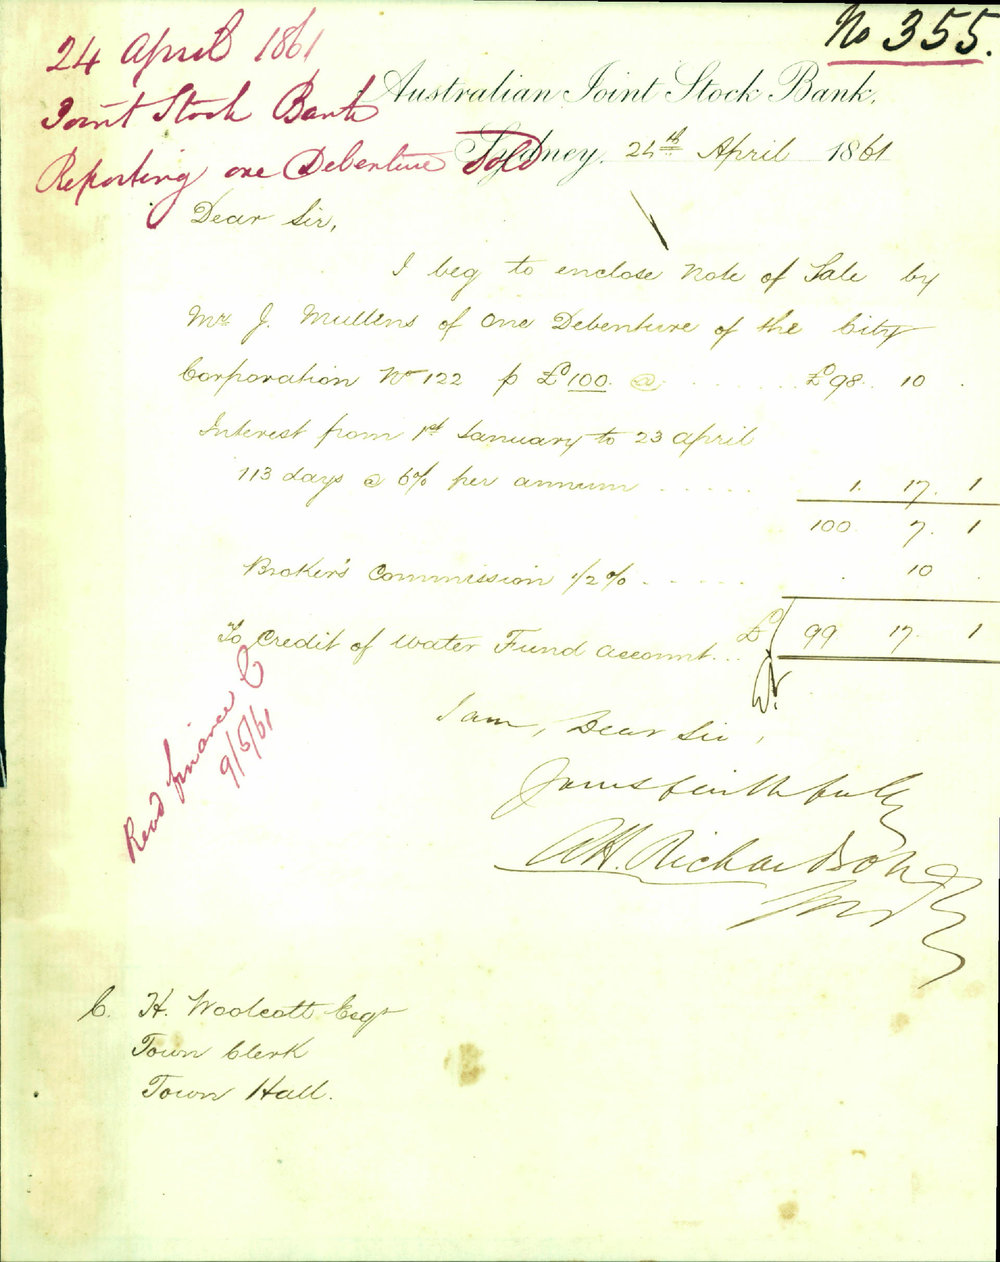 No 355.
24 April 1861
Joint Stock Bank
Reporting one Debenture Sold
Australian Joint Stock Bank,
Sydney, 24th April 1861
Dear Sir,
I beg to enclose Note of Sale by
Mr J. Mullens of One Debenture of the City
Corporation No 122 p £100 @ ....... £98 10 .
Interest from 1st January to 23 April
113 days @ 6% per annum ...... 1. 17. 1
100 7. 1
Broker's Commission 1/2% ...... . 10 .
To Credit of Water Fund account... £ 99 17. 1
I am, Dear Sir,
Yours faithfully
A.H. Richardson
Read Finance C
9/5/61
C. H. Woolcott Esqr
Town Clerk
Town Hall.